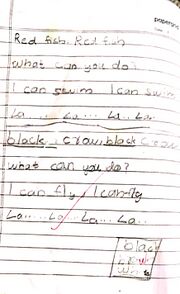 paperline
Red fish, Red fish
What can you do?
I can swim I can swim
La ... La ... La.. La..
black, crow, black crow
what can you do?
I can fly / I can fly
La.... La... La... La...
black